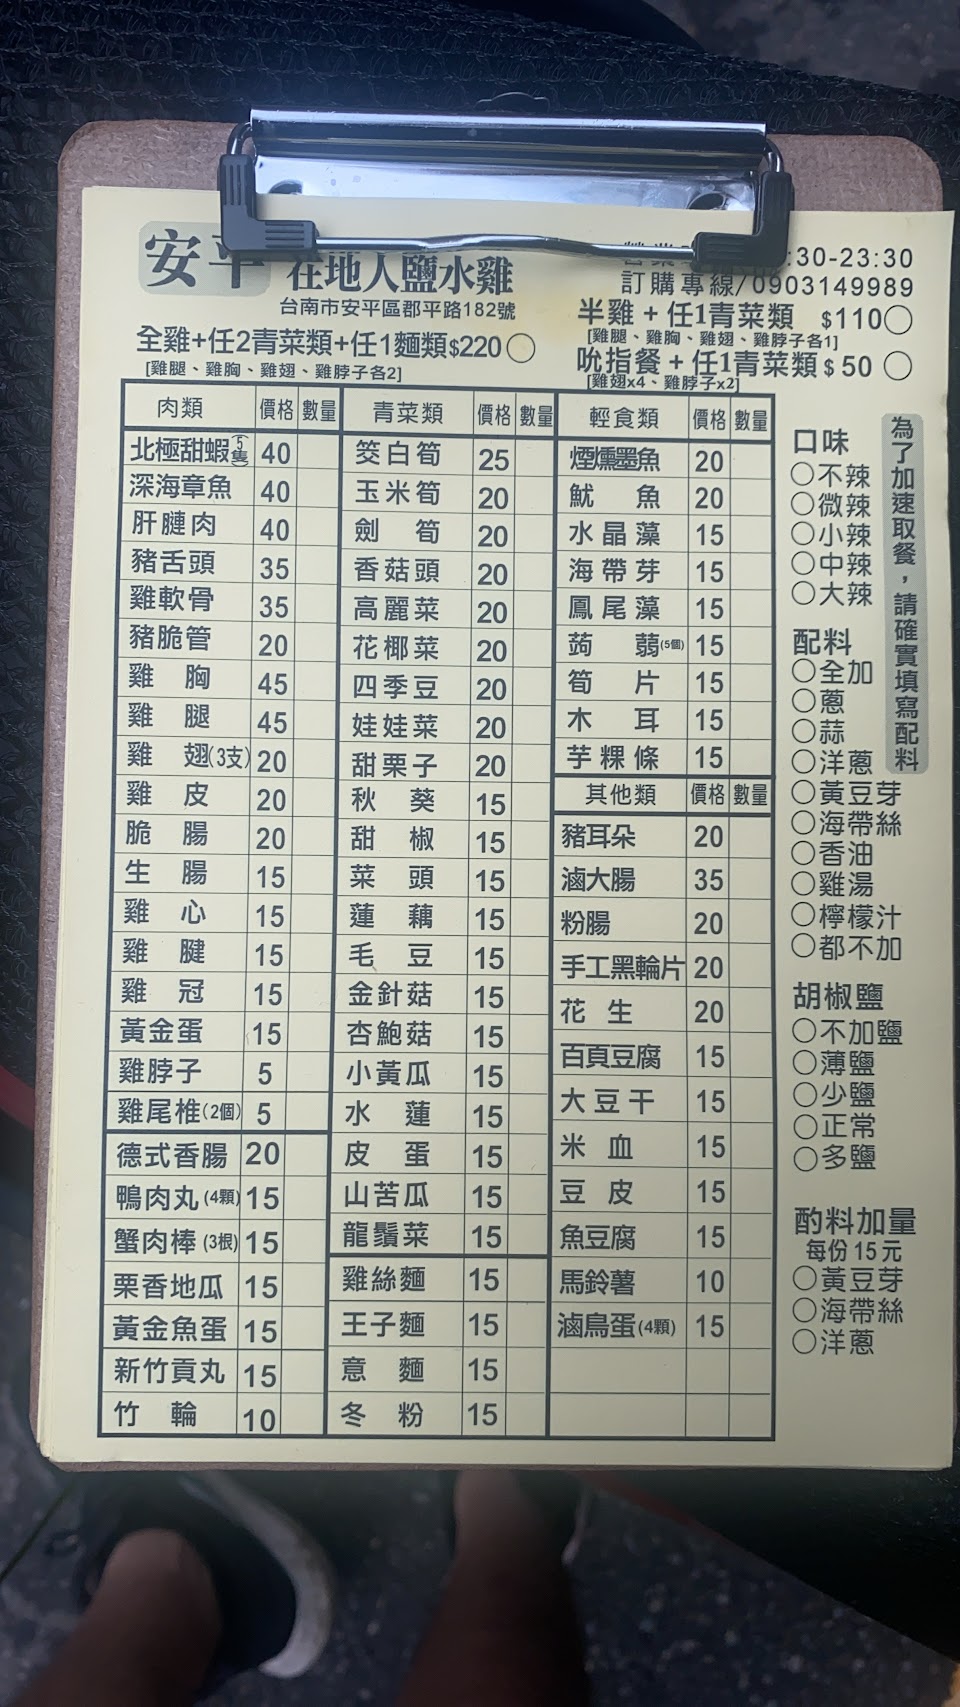 安平在地人鹽水雞
:30-23:30
訂購專線/0903149989
台南市安平區郡平路182號
全雞+任2青菜類+任1麵類$220
[雞腿、雞胸、雞翅、雞脖子各2]
半雞 + 任1青菜類 $110
[雞腿、雞胸、雞翅、雞脖子各1]
吮指餐 + 任1青菜類 $ 50
[雞翅x4、雞脖子x2]
肉類 價格 數量
北極甜蝦(5隻) 40
深海章魚 40
肝腱肉 40
豬舌頭 35
雞軟骨 35
豬脆管 20
雞胸 45
雞腿 45
雞翅(3支) 20
雞皮 20
脆腸 20
生腸 15
雞心 15
雞腱 15
雞冠 15
黃金蛋 15
雞脖子 5
雞尾椎(2個) 5
德式香腸 20
鴨肉丸(4顆) 15
蟹肉棒(3根) 15
栗香地瓜 15
黃金魚蛋 15
新竹貢丸 15
竹輪 10
青菜類 價格 數量
筊白筍 25
玉米筍 20
劍筍 20
香菇頭 20
高麗菜 20
花椰菜 20
四季豆 20
娃娃菜 20
甜栗子 20
秋葵 15
甜椒 15
菜頭 15
蓮藕 15
毛豆 15
金針菇 15
杏鮑菇 15
小黃瓜 15
水蓮 15
皮蛋 15
山苦瓜 15
龍鬚菜 15
雞絲麵 15
王子麵 15
意麵 15
冬粉 15
輕食類 價格 數量
煙燻墨魚 20
魷魚 20
水晶藻 15
海帶芽 15
鳳尾藻 15
蒟蒻(5個) 15
筍片 15
木耳 15
芋粿條 15
其他類 價格 數量
豬耳朵 20
滷大腸 35
粉腸 20
手工黑輪片 20
花生 20
百頁豆腐 15
大豆干 15
米血 15
豆皮 15
魚豆腐 15
馬鈴薯 10
滷鳥蛋(4顆) 15
口味
不辣
微辣
小辣
中辣
大辣
配料
全加
蔥
蒜
洋蔥
黃豆芽
海帶絲
香油
雞湯
檸檬汁
都不加
胡椒鹽
不加鹽
薄鹽
少鹽
正常
多鹽
酌料加量
每份15元
黃豆芽
海帶絲
洋蔥
為了加速取餐，請確實填寫配料